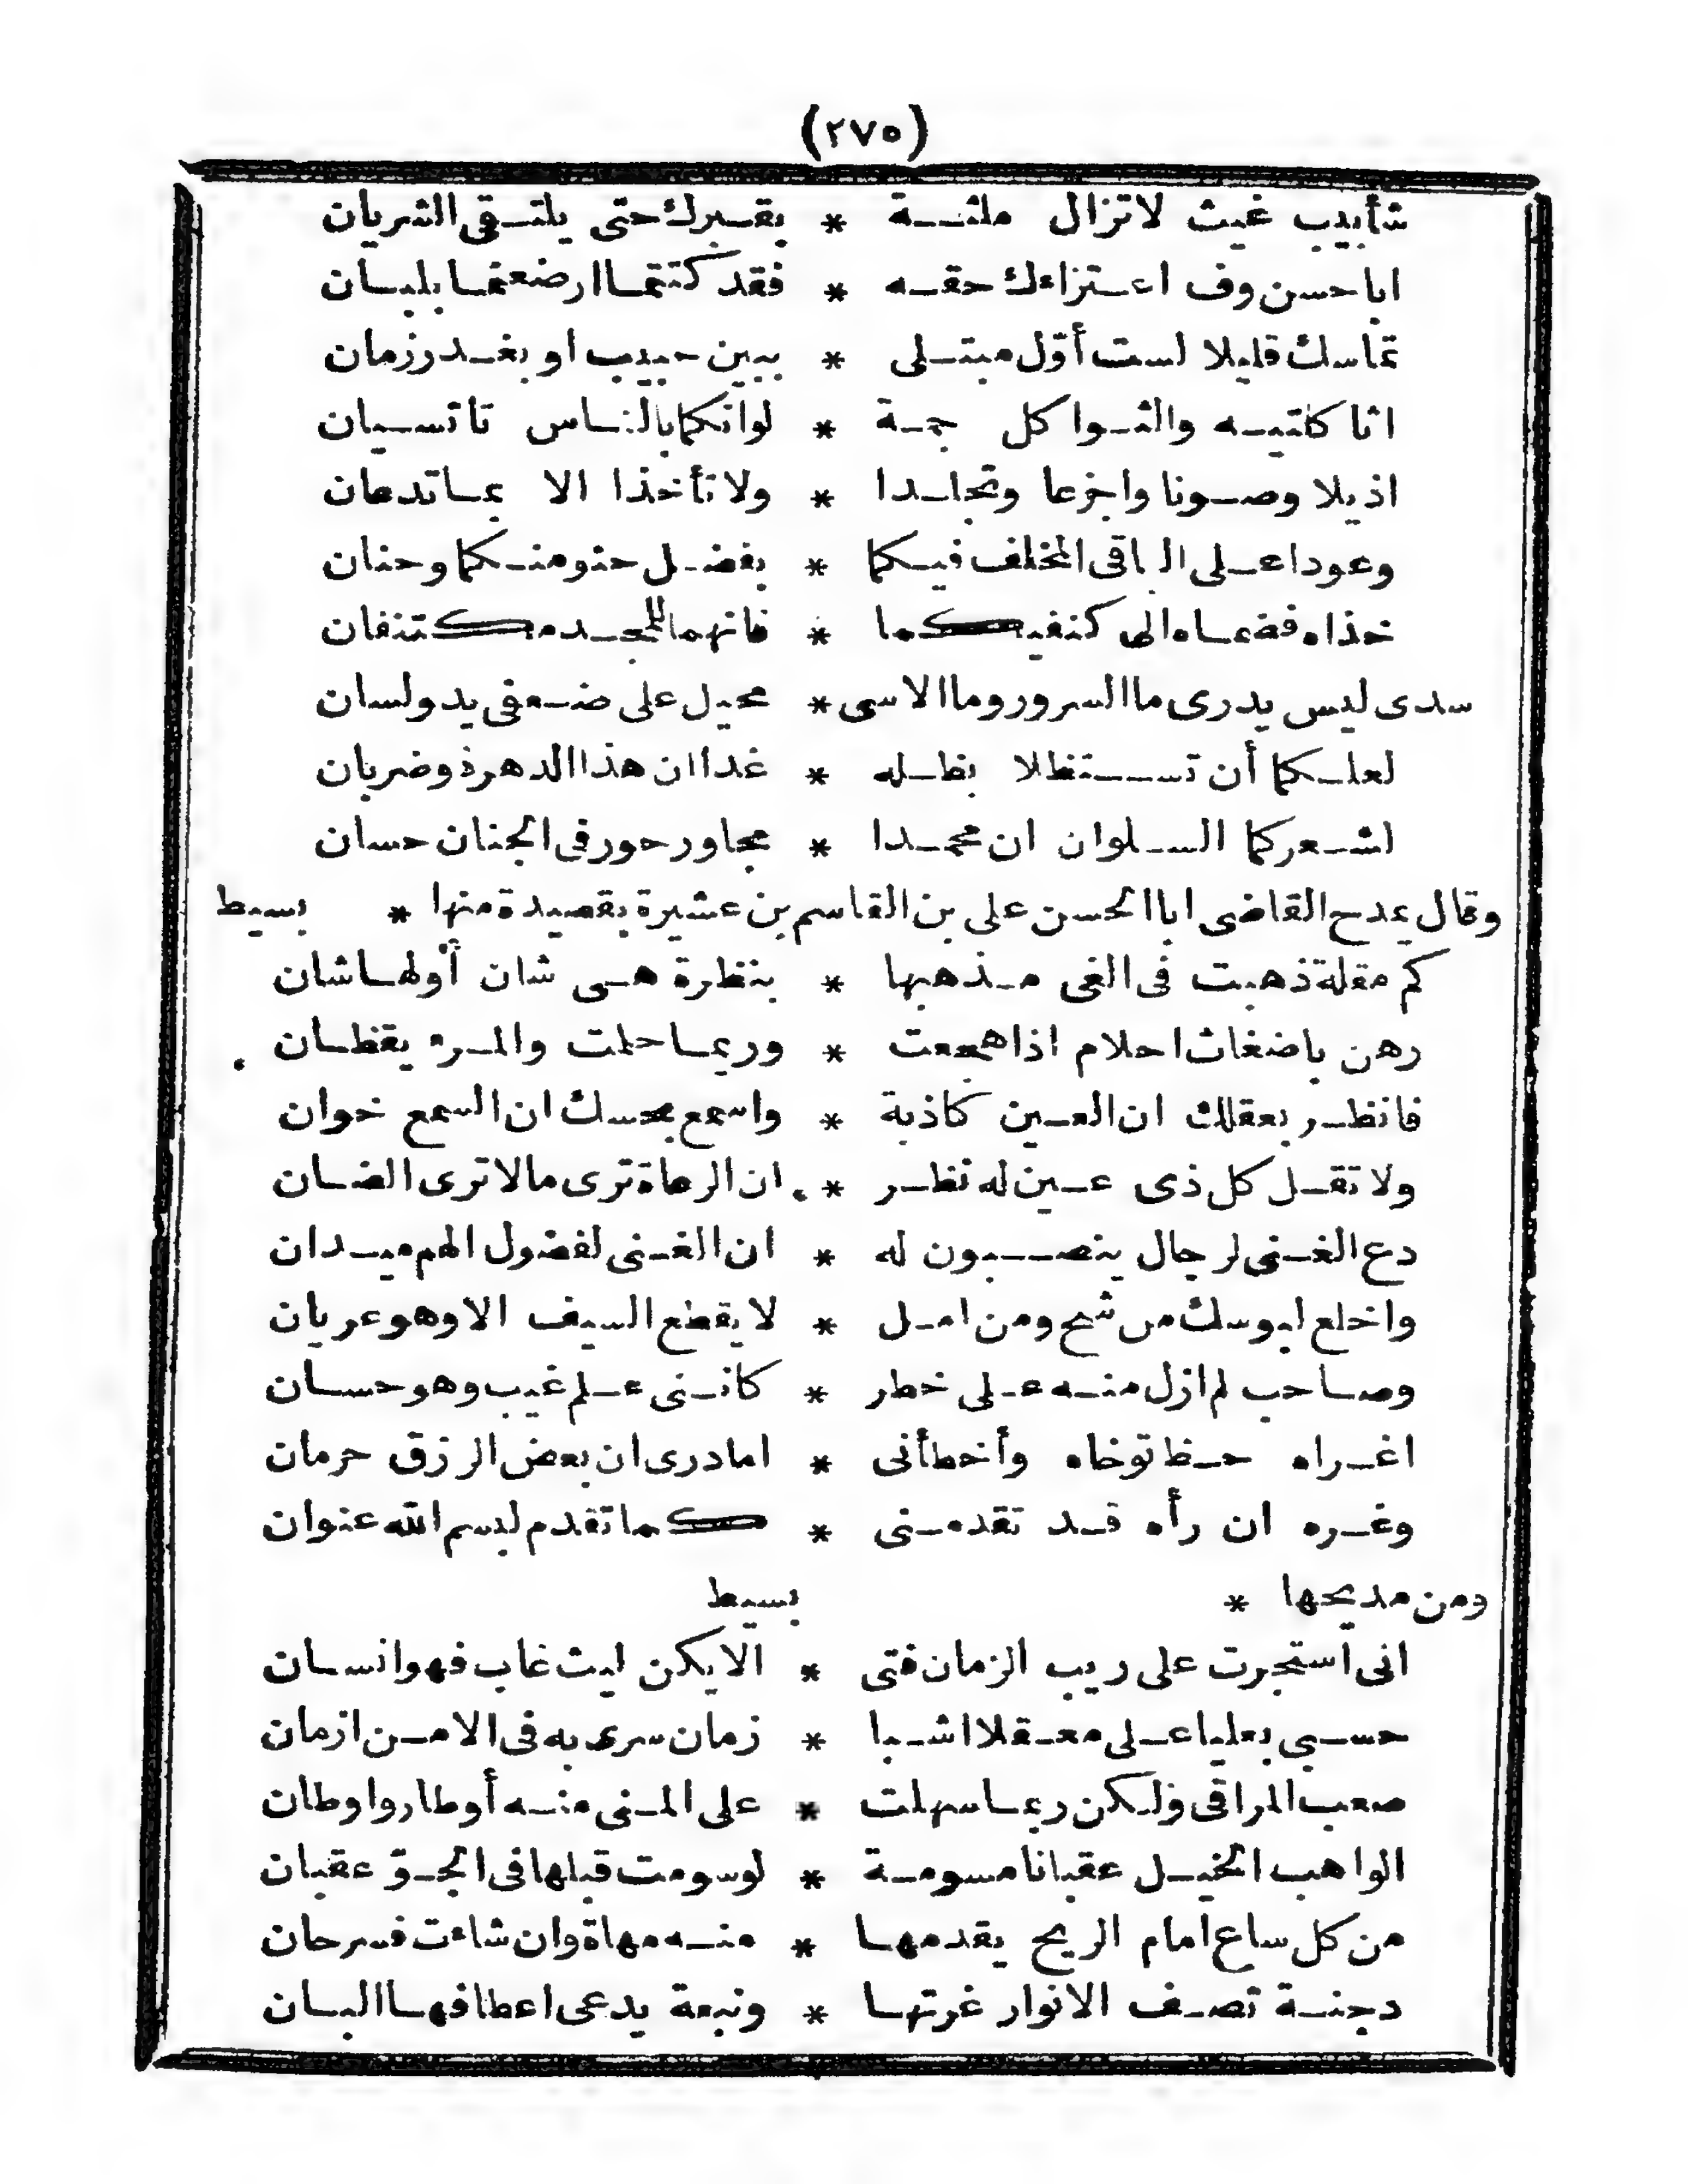 (٢٧٥)
شأبيب غيث لاتزال ملثة * بقبرك حتى يلتقى الثريان
اباحسن وف اعتزاءك حقه * فقد كنتما ارضعتما بلبان
تماسك قليلا لست أوّل مبتلى * ببين حبيب او بغدر زمان
اثاكلتيه والثوا كل جمة * لوانكما بالناس تاتسيان
اذيلا وصونا واجزعا وتجلدا * ولا تأخذا الا بما تدعان
وعودا على الباقى المخلف فيكما * بفضل حنو منكما وحنان
خذاه فضماه الى كنفيكما * فانهما للمجد مكتنفان
سدى ليس يدرى ما السرور وما الاسى * محيل على ضعفى يد ولسان
لعلكما أن تستظلا بظله * غدا ان هذا الدهر ذو ضربان
اشعركما السلوان ان محمدا * مجاور حور فى الجنان حسان
وقال يمدح القاضى ابا الحسن على بن القاسم بن عشيرة بقصيدة منها * بسيط
كم مقلة ذهبت فى الغى مذهبها * بنظرة هى شان أولها شان
رهن باضغاث احلام اذا هجعت * وربما حلمت والمرء يقظان
فانظر بعقلك ان العين كاذبة * واسمع بحسك ان السمع خوان
ولا تقل كل ذى عين له نظر * ان الرعاة ترى مالا ترى الضان
دع الغنى لرجال ينصبون له * ان الغنى لفضول الهم ميدان
واخلع لبوسك من شح ومن امل * لا يقطع السيف الا وهو عريان
وصاحب لم ازل منه على خطر * كاننى علم غيب وهو حسان
اغراه حظ توخاه وأخطأنى * امادرى ان بعض الرزق حرمان
وغره ان رأه قد تقدمنى * كما تقدم لبسم الله عنوان
ومن مديحها * بسيط
انى استجرت على ريب الزمان فتى * الا يكن ليث غاب فهو انسان
حسبى بعليا على معقلا اشبا * زمان سرى به فى الامن ازمان
صعب المراقى ولكن ربما سهلت * على المنى منه أوطار واوطان
الواهب الخيل عقبانا مسومة * لو سومت قبلها فى الجوّ عقبان
من كل ساع امام الريح يقدمها * منه مهاة وان شاءت فسرحان
دجنة تصف الانوار غرتها * ونبعة يدعى اعطافها البان